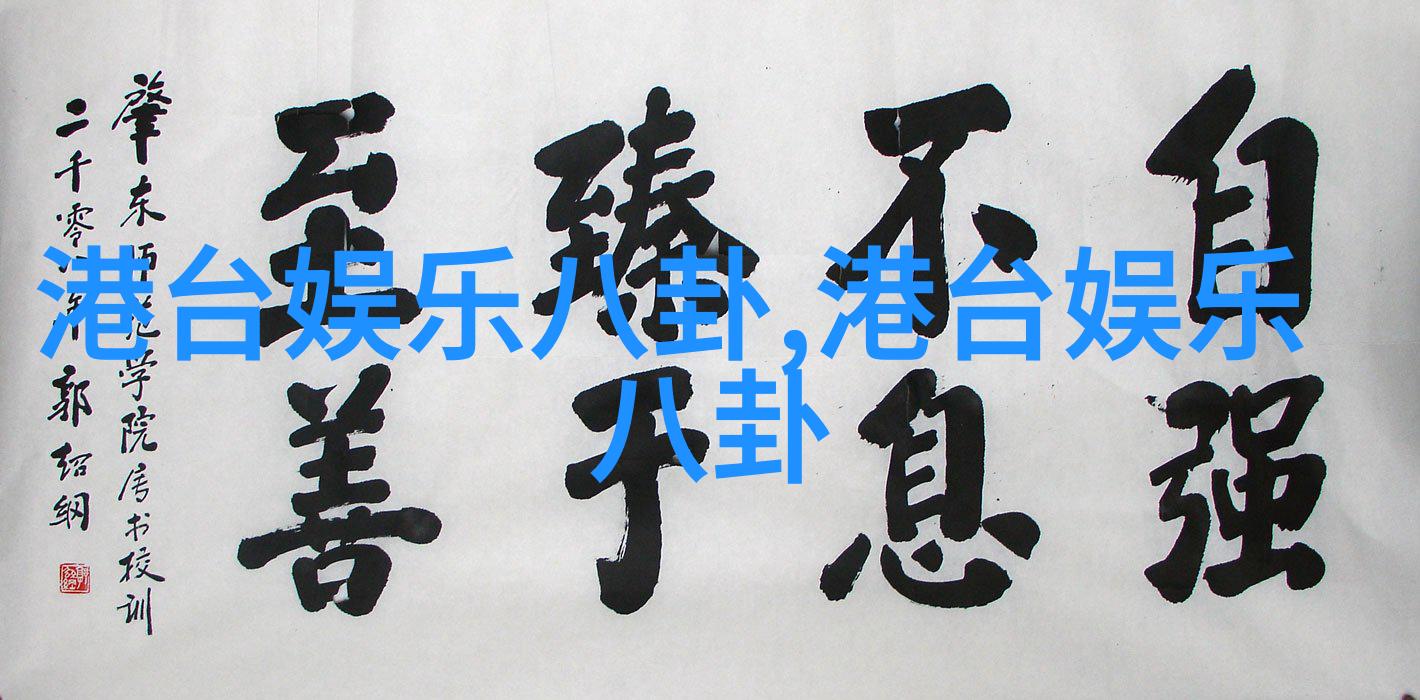 自强
不息
臻于
至善
肇东师范学院属书校训
二千零年 郭绍纲
港台娱乐八卦,港台娱乐
八卦